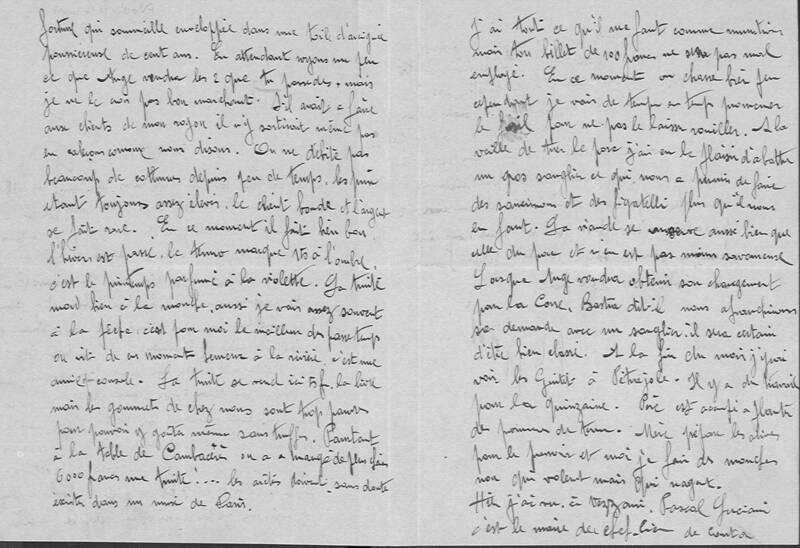 Jérôme qui sommeille enveloppée dans une toile d'araignée
poussiereuse de cent ans. En attendant voyons un peu
ce que Ange vendra les 2 que tu possedes, mais
je ne le crois pas bon marchand. S'il avait a faire
aux clients de mon rayon il n'y sortirait même pas
en caleçon comme nous disons. On ne débite pas
beaucoup de costumes depuis peu de temps, les prix
etant toujours assez élevés, le client boude et l'argent
se fait rare. En ce moment il fait bien bon
l'hiver est passé, le termo marque 15 à l'ombre,
c'est le printemps parfumé à la violette. La truite
mord bien à la mouche, aussi je vais assez souvent
à la pêche, c'est pour moi le meilleur des passe temps
on vit de ces moments heureux à la rivière, c'est une
amie console. La truite se vend ici 75 f. la livre
mais les gourmets de chez nous sont trop pauvres
pour pouvoir y goûter même sans truffes. Pourtant
à la table de Cambacérès on a a mangé de plus chère
6000 francs une truite!... les arêtes doivent sans doute
exister dans un musé de Paris.
j'ai tout ce qu'il me faut comme munitions
mais ton billet de 100 francs ne sera pas mal
employé. En ce moment on chasse bien peu
cependant je vais de temps en temps promener
le fusil pour ne pas le laisser rouiller. A la
veille de tuer le porc j'ai eu le plaisir d'abattre
un gros sanglier ce qui nous a permis de faire
des saucissons et des figatelli plus qu'il nous
en faut. La viande se conserve aussi bien que
celle du porc et n'en est pas moins savoureuse
Lorsque Ange voudra obtenir son changement
pour la Corse, Bastia dit-il nous
sa demande avec un sanglier il sera certain
d'être bien classé. A la fin du mois j'irai
voir les à Petrajole. Il y a du travail
pour la quinzaine. Père est occupé a planter
des pommes de terre. Mère prépare les olives
pour le pressoir et moi je fais des mouches
non qui volent mais qui nagent.
Hier j'ai vu, à Vezzani, Pascal Luciani
c'est le maire du chef-lieu de canton